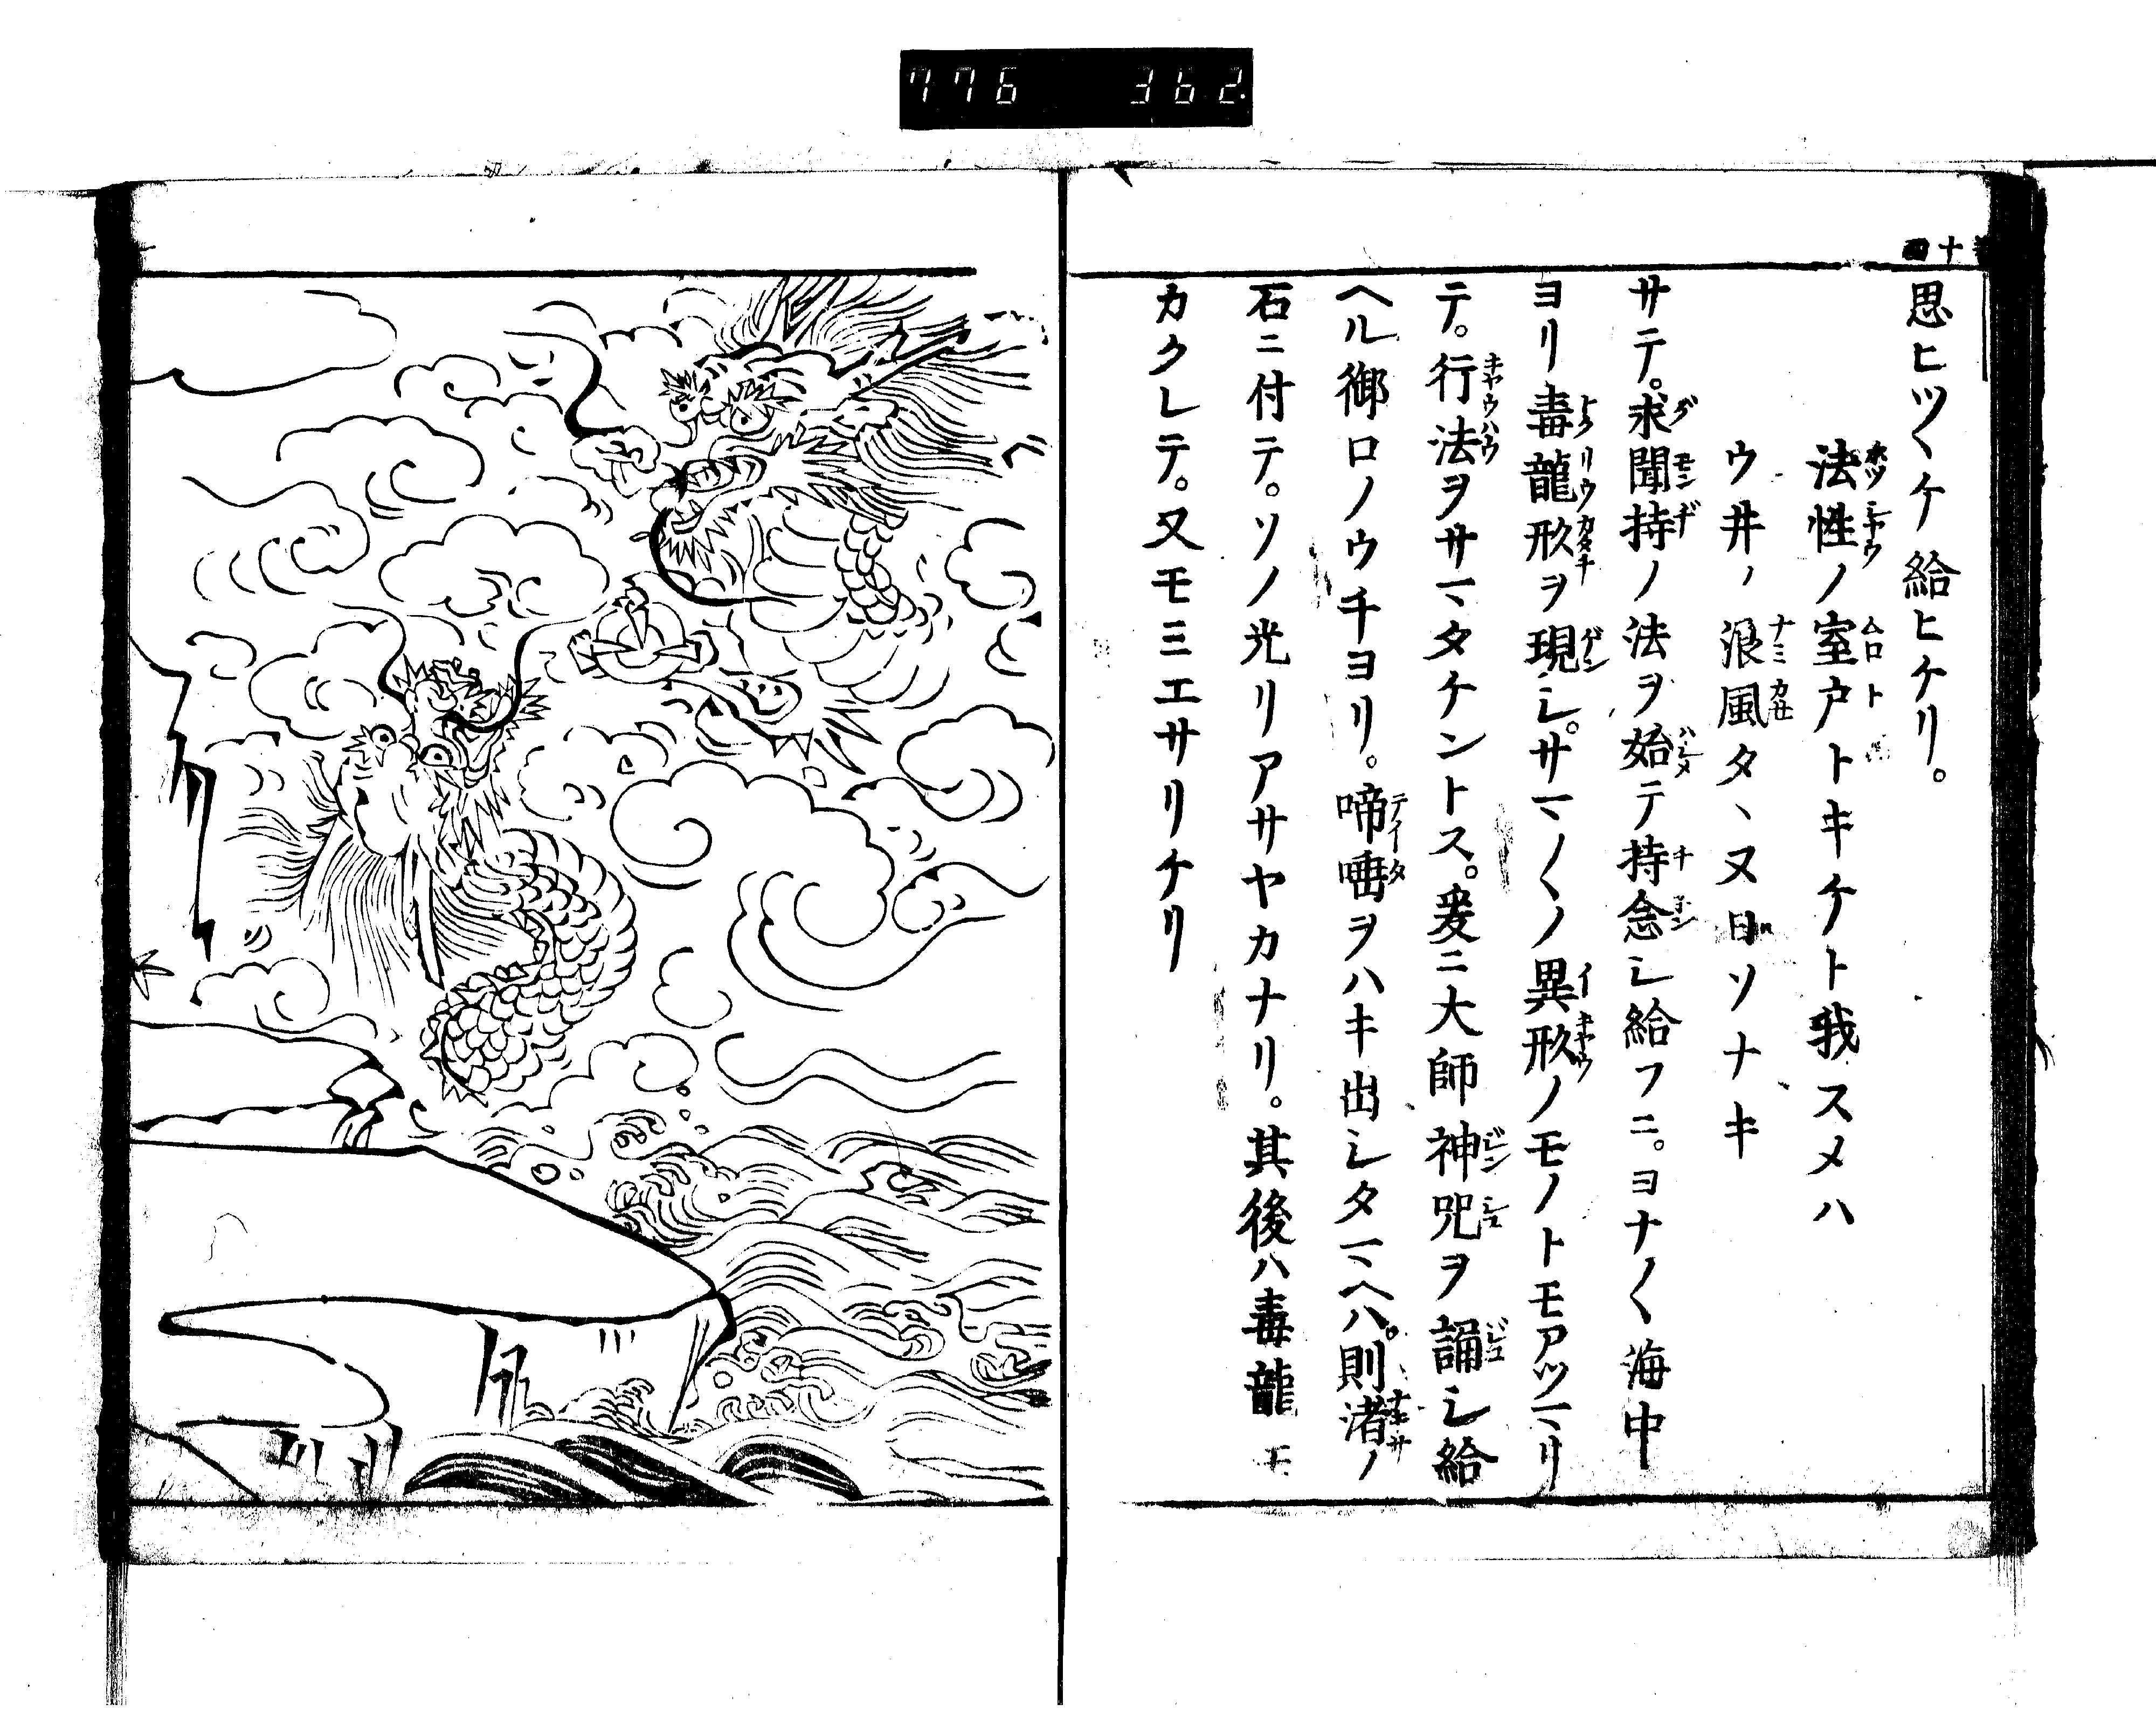 776 362.
十四
思ヒツヽケ給ヒケリ。
法性ノ室戸トキケト我スメハ
ウ井ノ浪風タヽヌ日ソナキ
サテ。求聞持ノ法ヲ始テ持念シ給フニ。ヨナ〳〵海中
ヨリ毒龍形ヲ現シ。サマ〳〵ノ異形ノモノトモアツマリ
テ。行法ヲサマタケントス。爰ニ大師神咒ヲ誦シ給
ヘル御口ノウチヨリ。啼唾ヲハキ出シタマヘハ。則渚ノ
石ニ付テ。ソノ光リアサヤカナリ。其後ハ毒龍モ
カクレテ。又モミエサリケリ